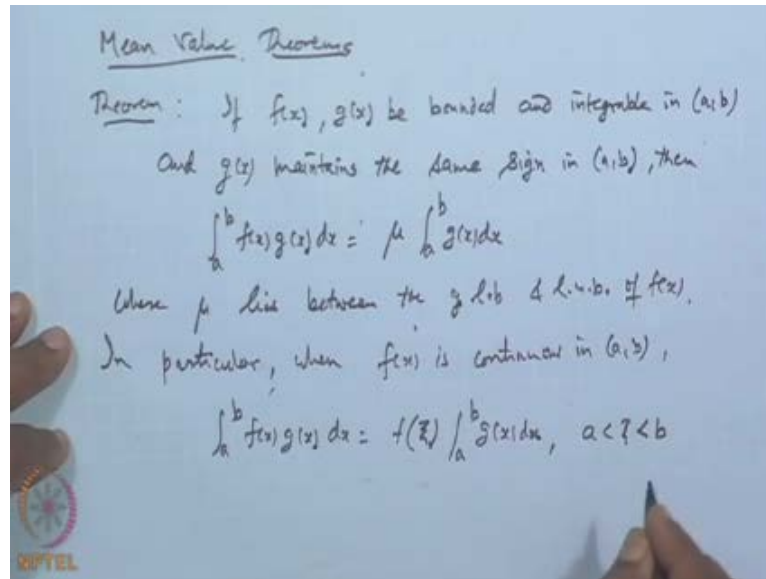 Mean Value Theorems
Theorem : If f(x), g(x) be bounded and integrable in (a,b)
and g(x) maintains the same sign in (a,b), then
∫_a^b f(x) g(x) dx = μ ∫_a^b g(x) dx
where μ lies between the g.l.b & l.u.b. of f(x).
In particular, when f(x) is continuous in (a,b),
∫_a^b f(x) g(x) dx = f(ξ) ∫_a^b g(x) dx, a < ξ < b
NPTEL